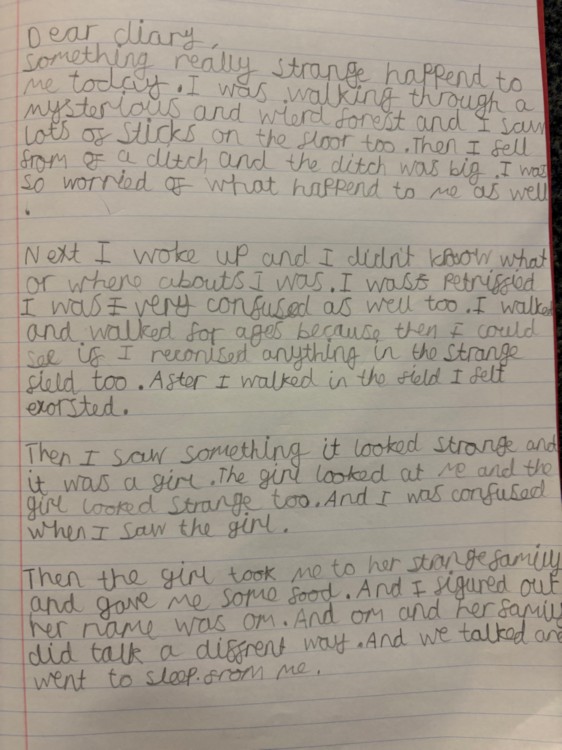 Dear diary,
something really strange happend to
me today. I was walking through a
mysterious and wierd forest and I saw
lots of sticks on the floor too. Then I fell
from of a ditch and the ditch was big. I was
so worried of what happend to me as well
.
Next I woke up and I didn't know what
or where abouts I was. I was petriffied
I was very confused as well too. I walked
and walked for ages because then I could
see if I reconised anything in the strange
field too. After I walked in the field I felt
exorsted.
Then I saw something it looked strange and
it was a girl. The girl looked at me and the
girl looked strange too. And I was confused
when I saw the girl.
Then the girl took me to her strange family
and gave me some food. And I figured out
her name was om. And om and her family
did talk a diffrent way. And we talked and
went to sleep. from me.